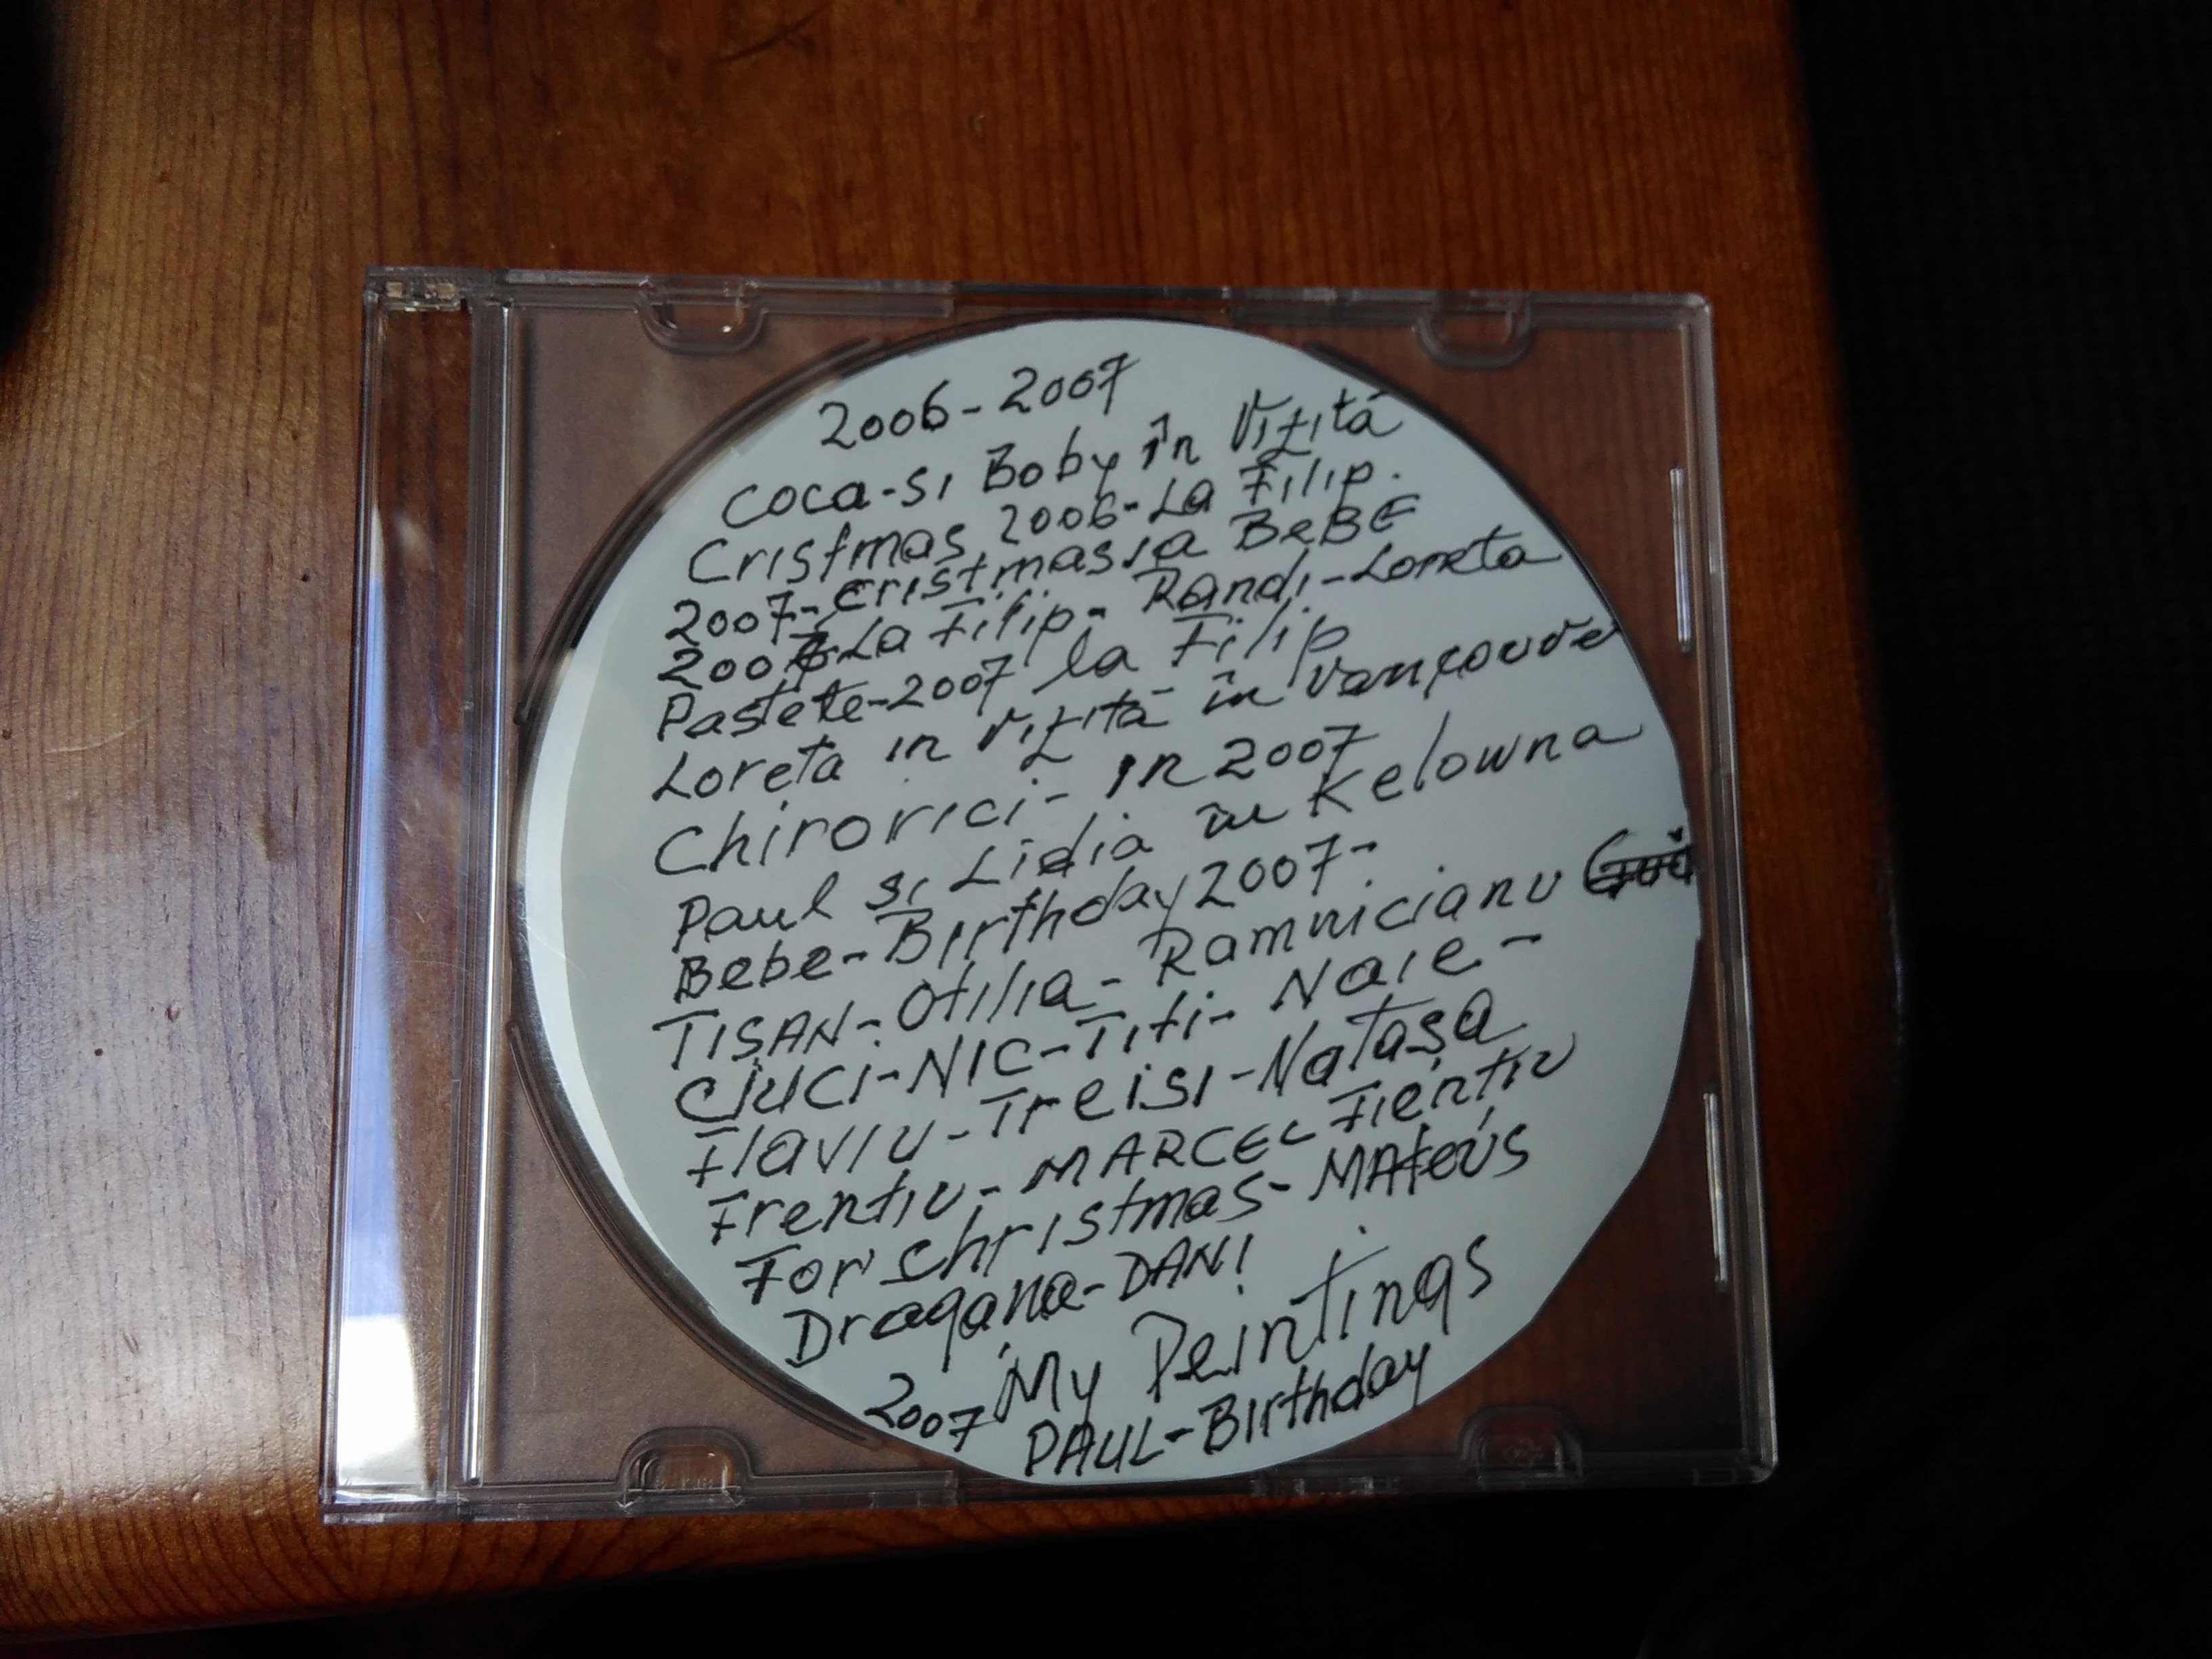 2006-2007
Coca-si Boby în Vizită
Cristmas 2006-La Filip.
2007-Cristmas la BeBE
La Filip- Randi-Loreta
Pastete-2007 la Filip
Loreta in Vizită în Vancouve
Chirorici- in 2007
Paul si Lidia în Kelowna
Bebe-Birthday 2007-
TISAN-Otilia-Ramnicianu
CIUCI-NIC-Titi-Naie-
Flaviu-Treisi-Natașa
Frentiu-MARCEL Frentiu
For Christmas-MAteus
Dragana-DAN!
2007 My Peintings
PAUL-Birthday